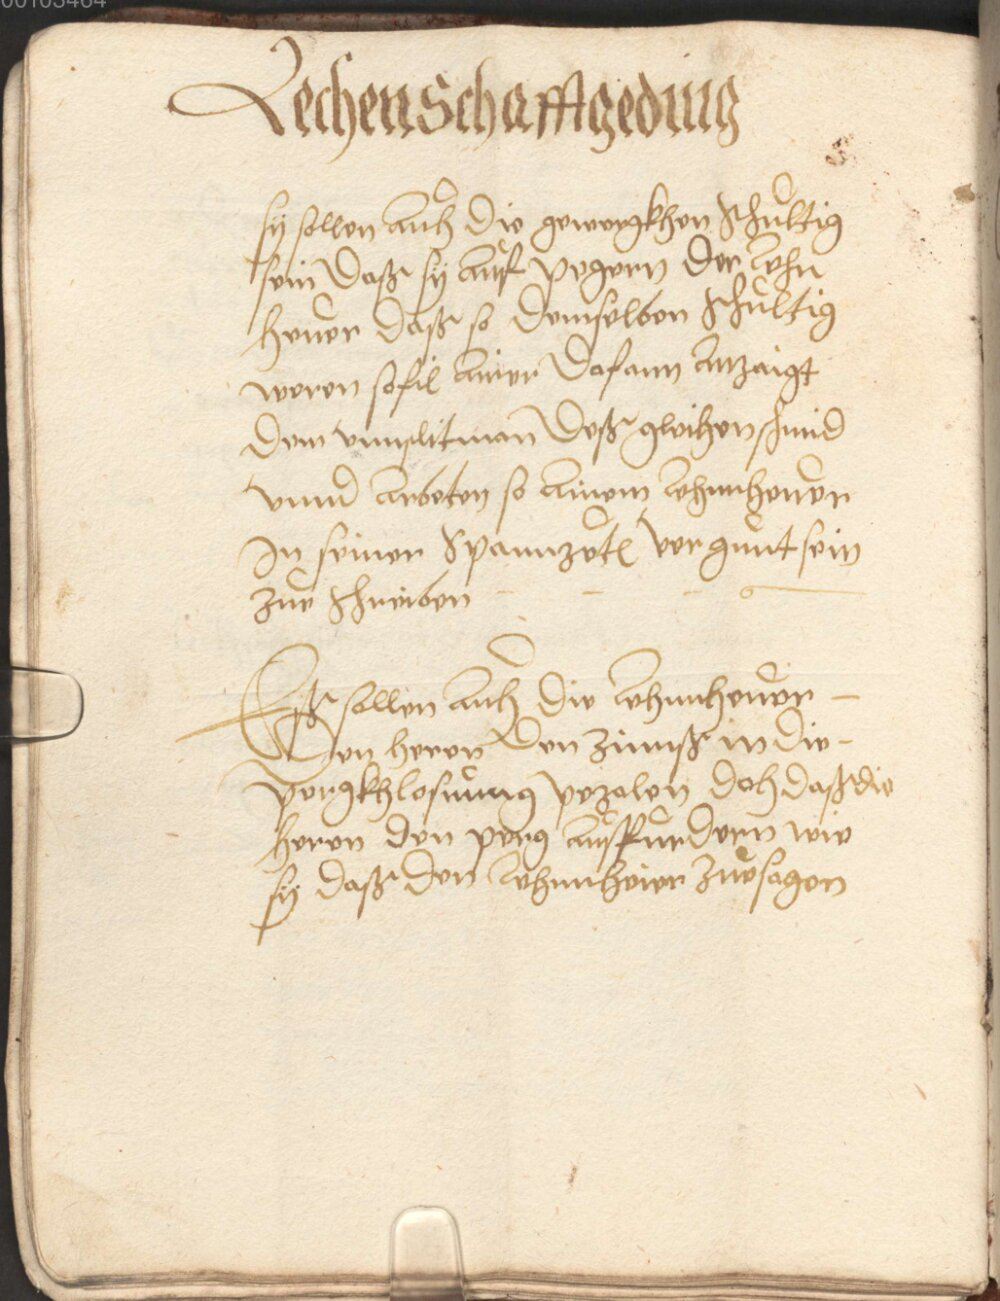 00103464
Lechenschafftgeding
sÿ sollen auch die gewergkhen schuldig
sein daß sÿ auf pegern der lehn
heuer daß so demselben schuldig
weren sofil ainer dafann antzaigt
dem unnslitman deß gleihen schmid
vnnd arbeten so ainem lehnheuer
In seiner Spannzetl vergunt sein
zue schreiben
Eß sollen auch die lehnnheuer
den heren den zinnß in die
pergkhlosunng pezalen doh daß die
heren den perg auffurdern wie
sÿ daß den lehnnheier zuesagen